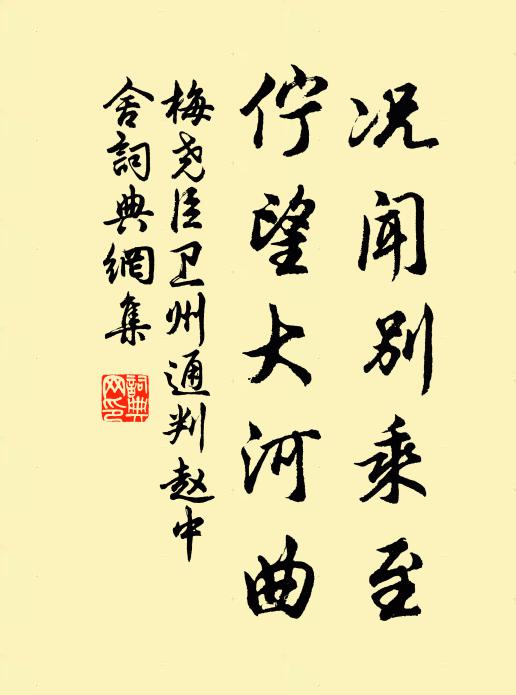 况闻别乘至
伫望大河曲
梅尧臣卫州通判赵中
舍詞典網集
詞典
网印